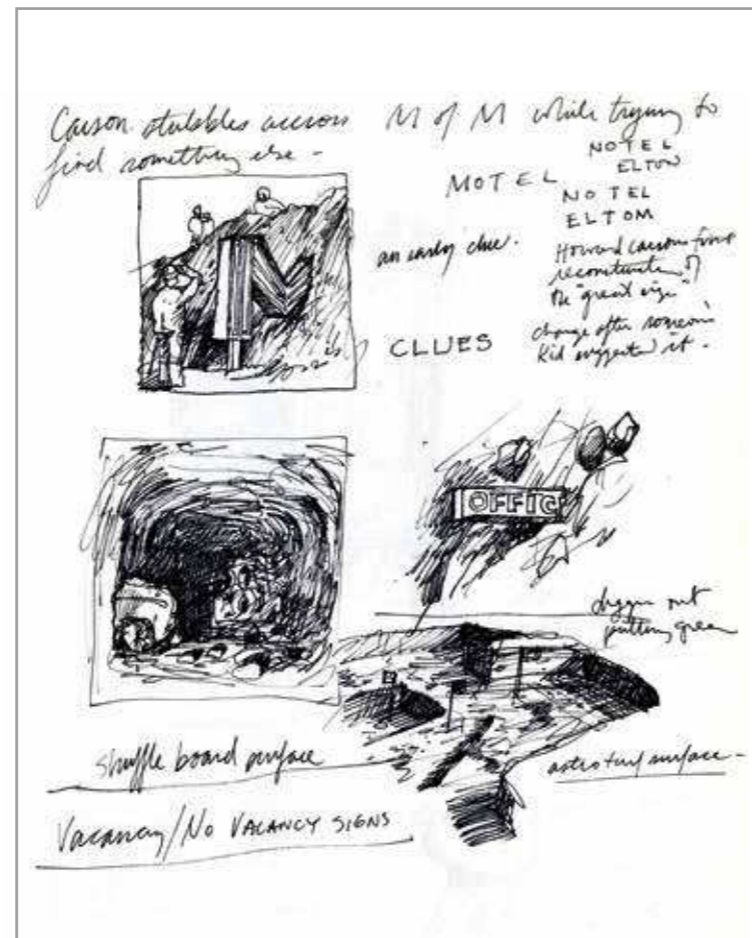 Carson stubbles accross M of M while trying to
find something else -
MOTEL
NOTEL
ELTON
NO TEL
ELTOM
an early clue.
Howard Carsons first
reconstruction of
the "great sign"
change after someone's
kid suggested it -
CLUES
M
OFFIC
diggin out
putting green
shuffle board surface
astroturf surface -
Vacancy/No VACANCY SIGNS